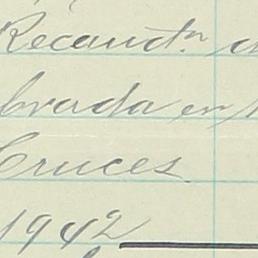 Recaudⁿ
brada en
Cruces
1942